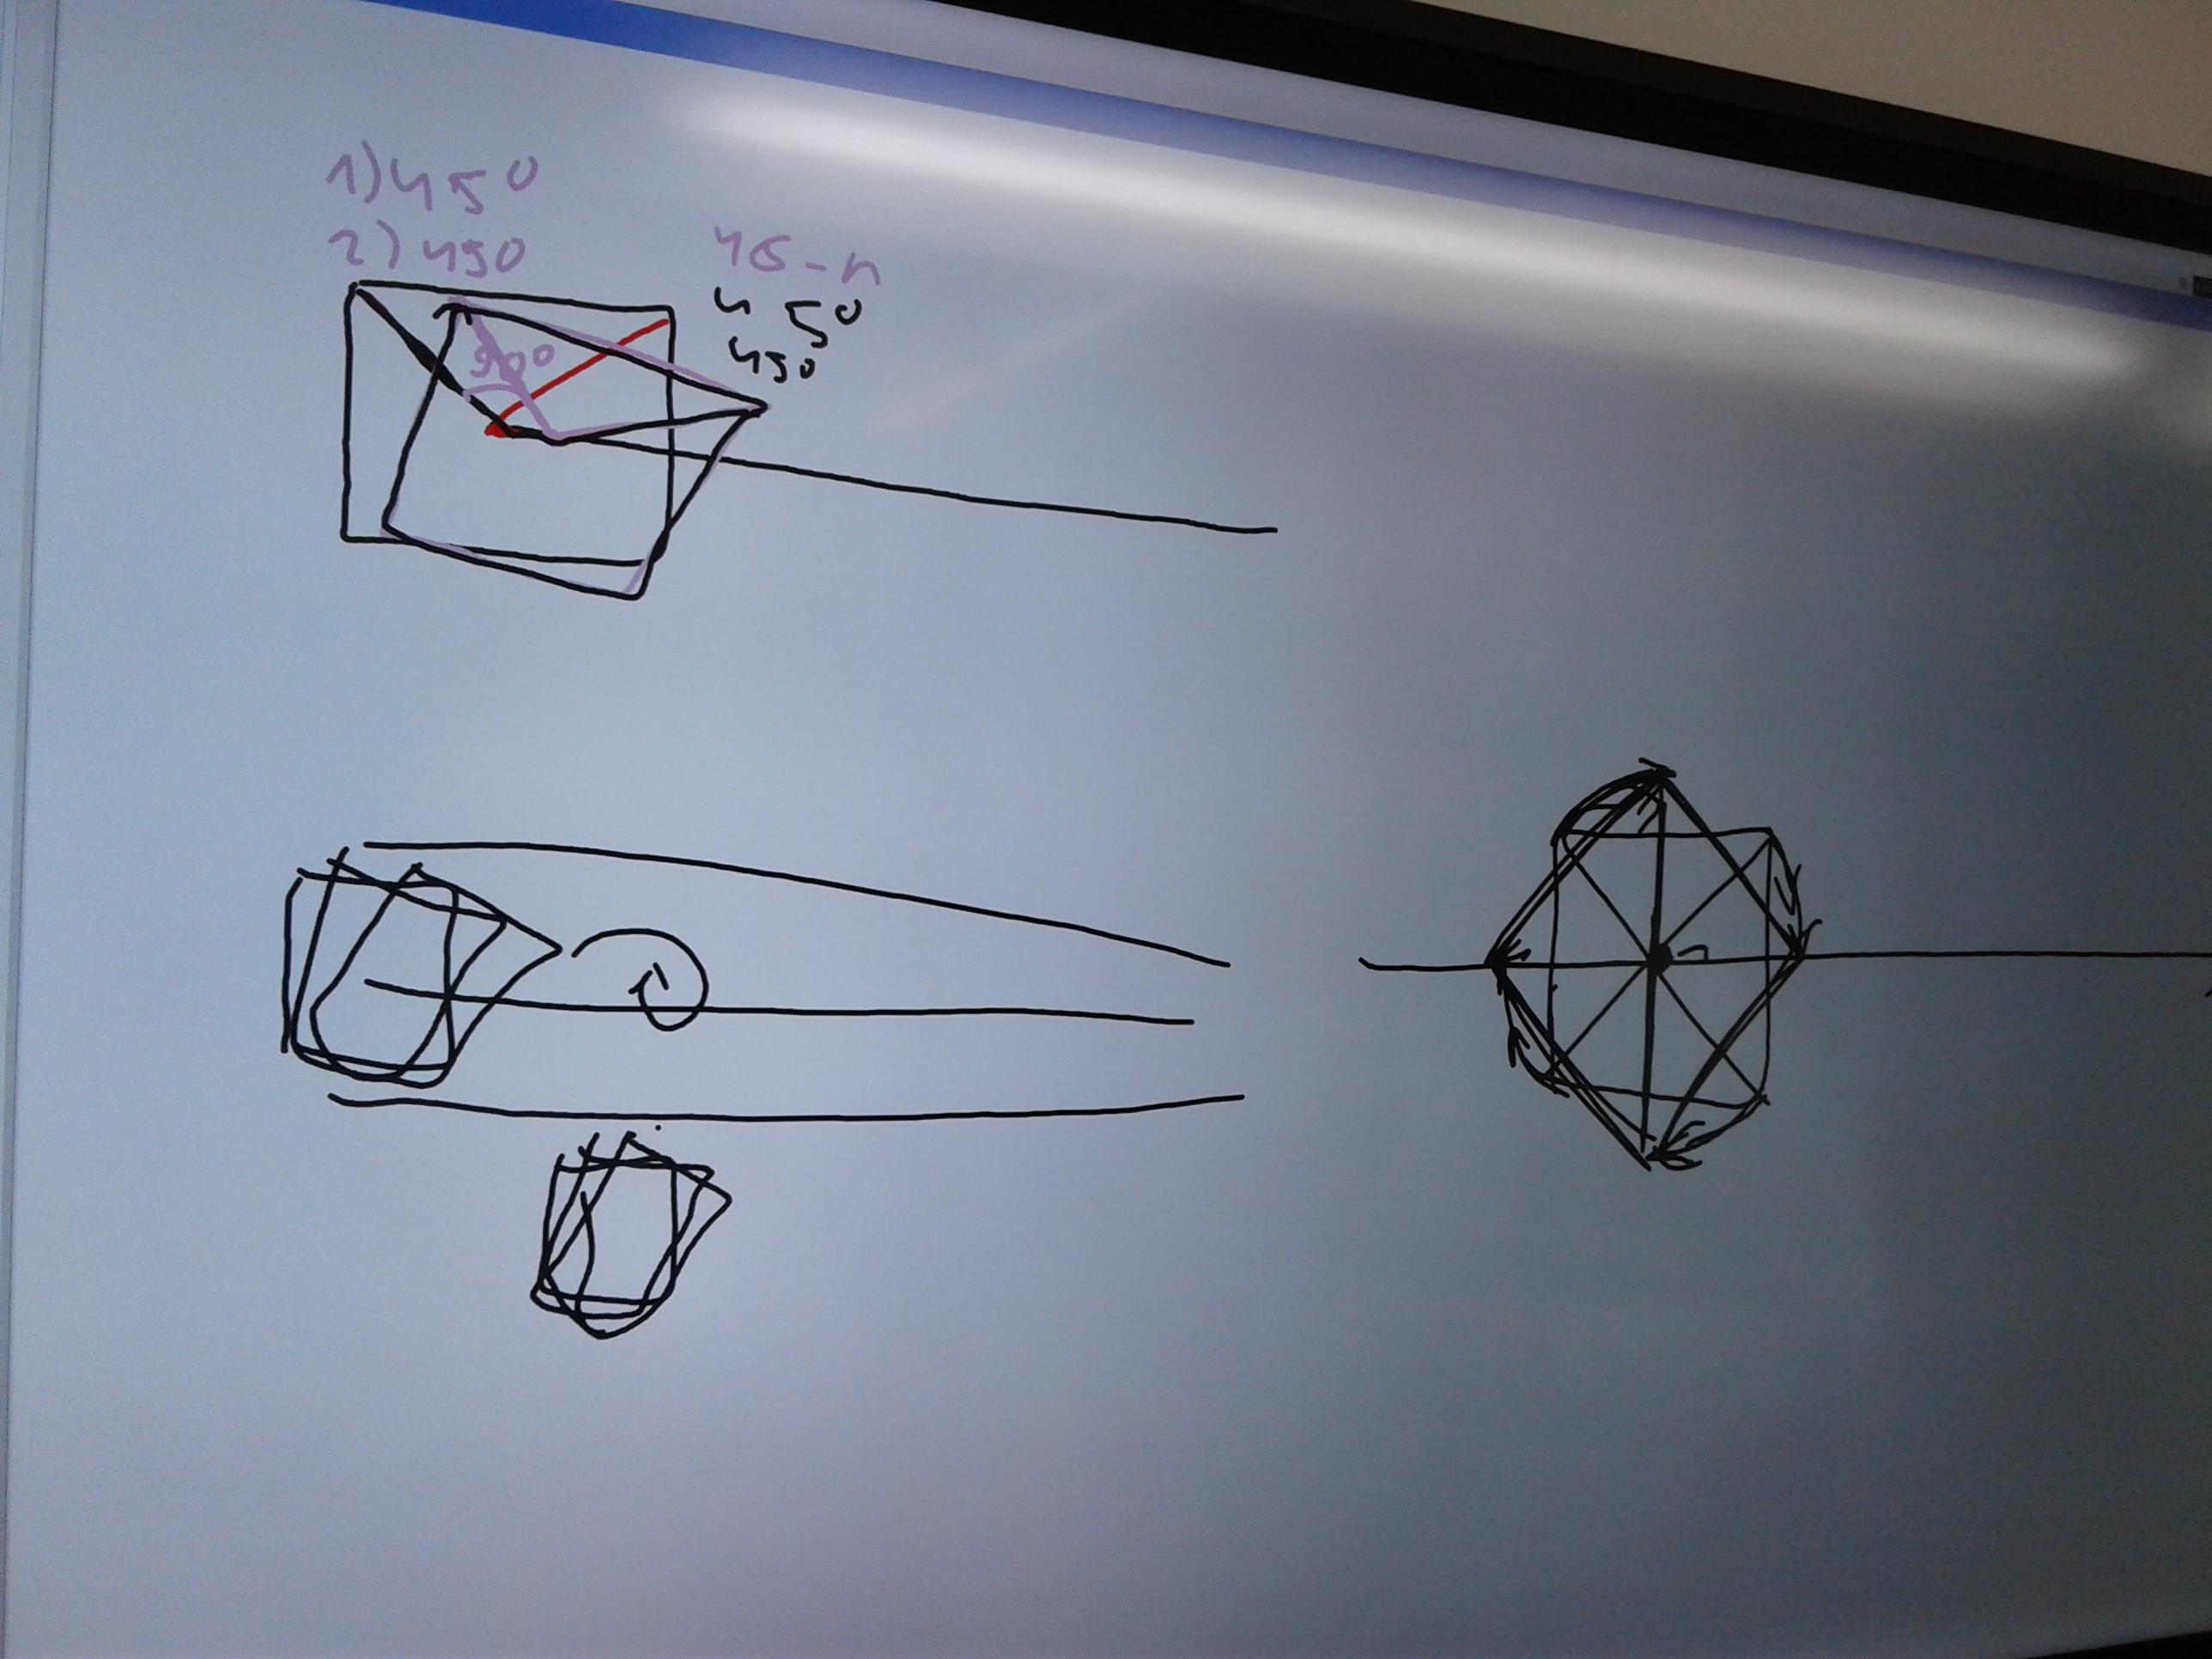 1) 45°
2) 450
45-n
45°
450
90°